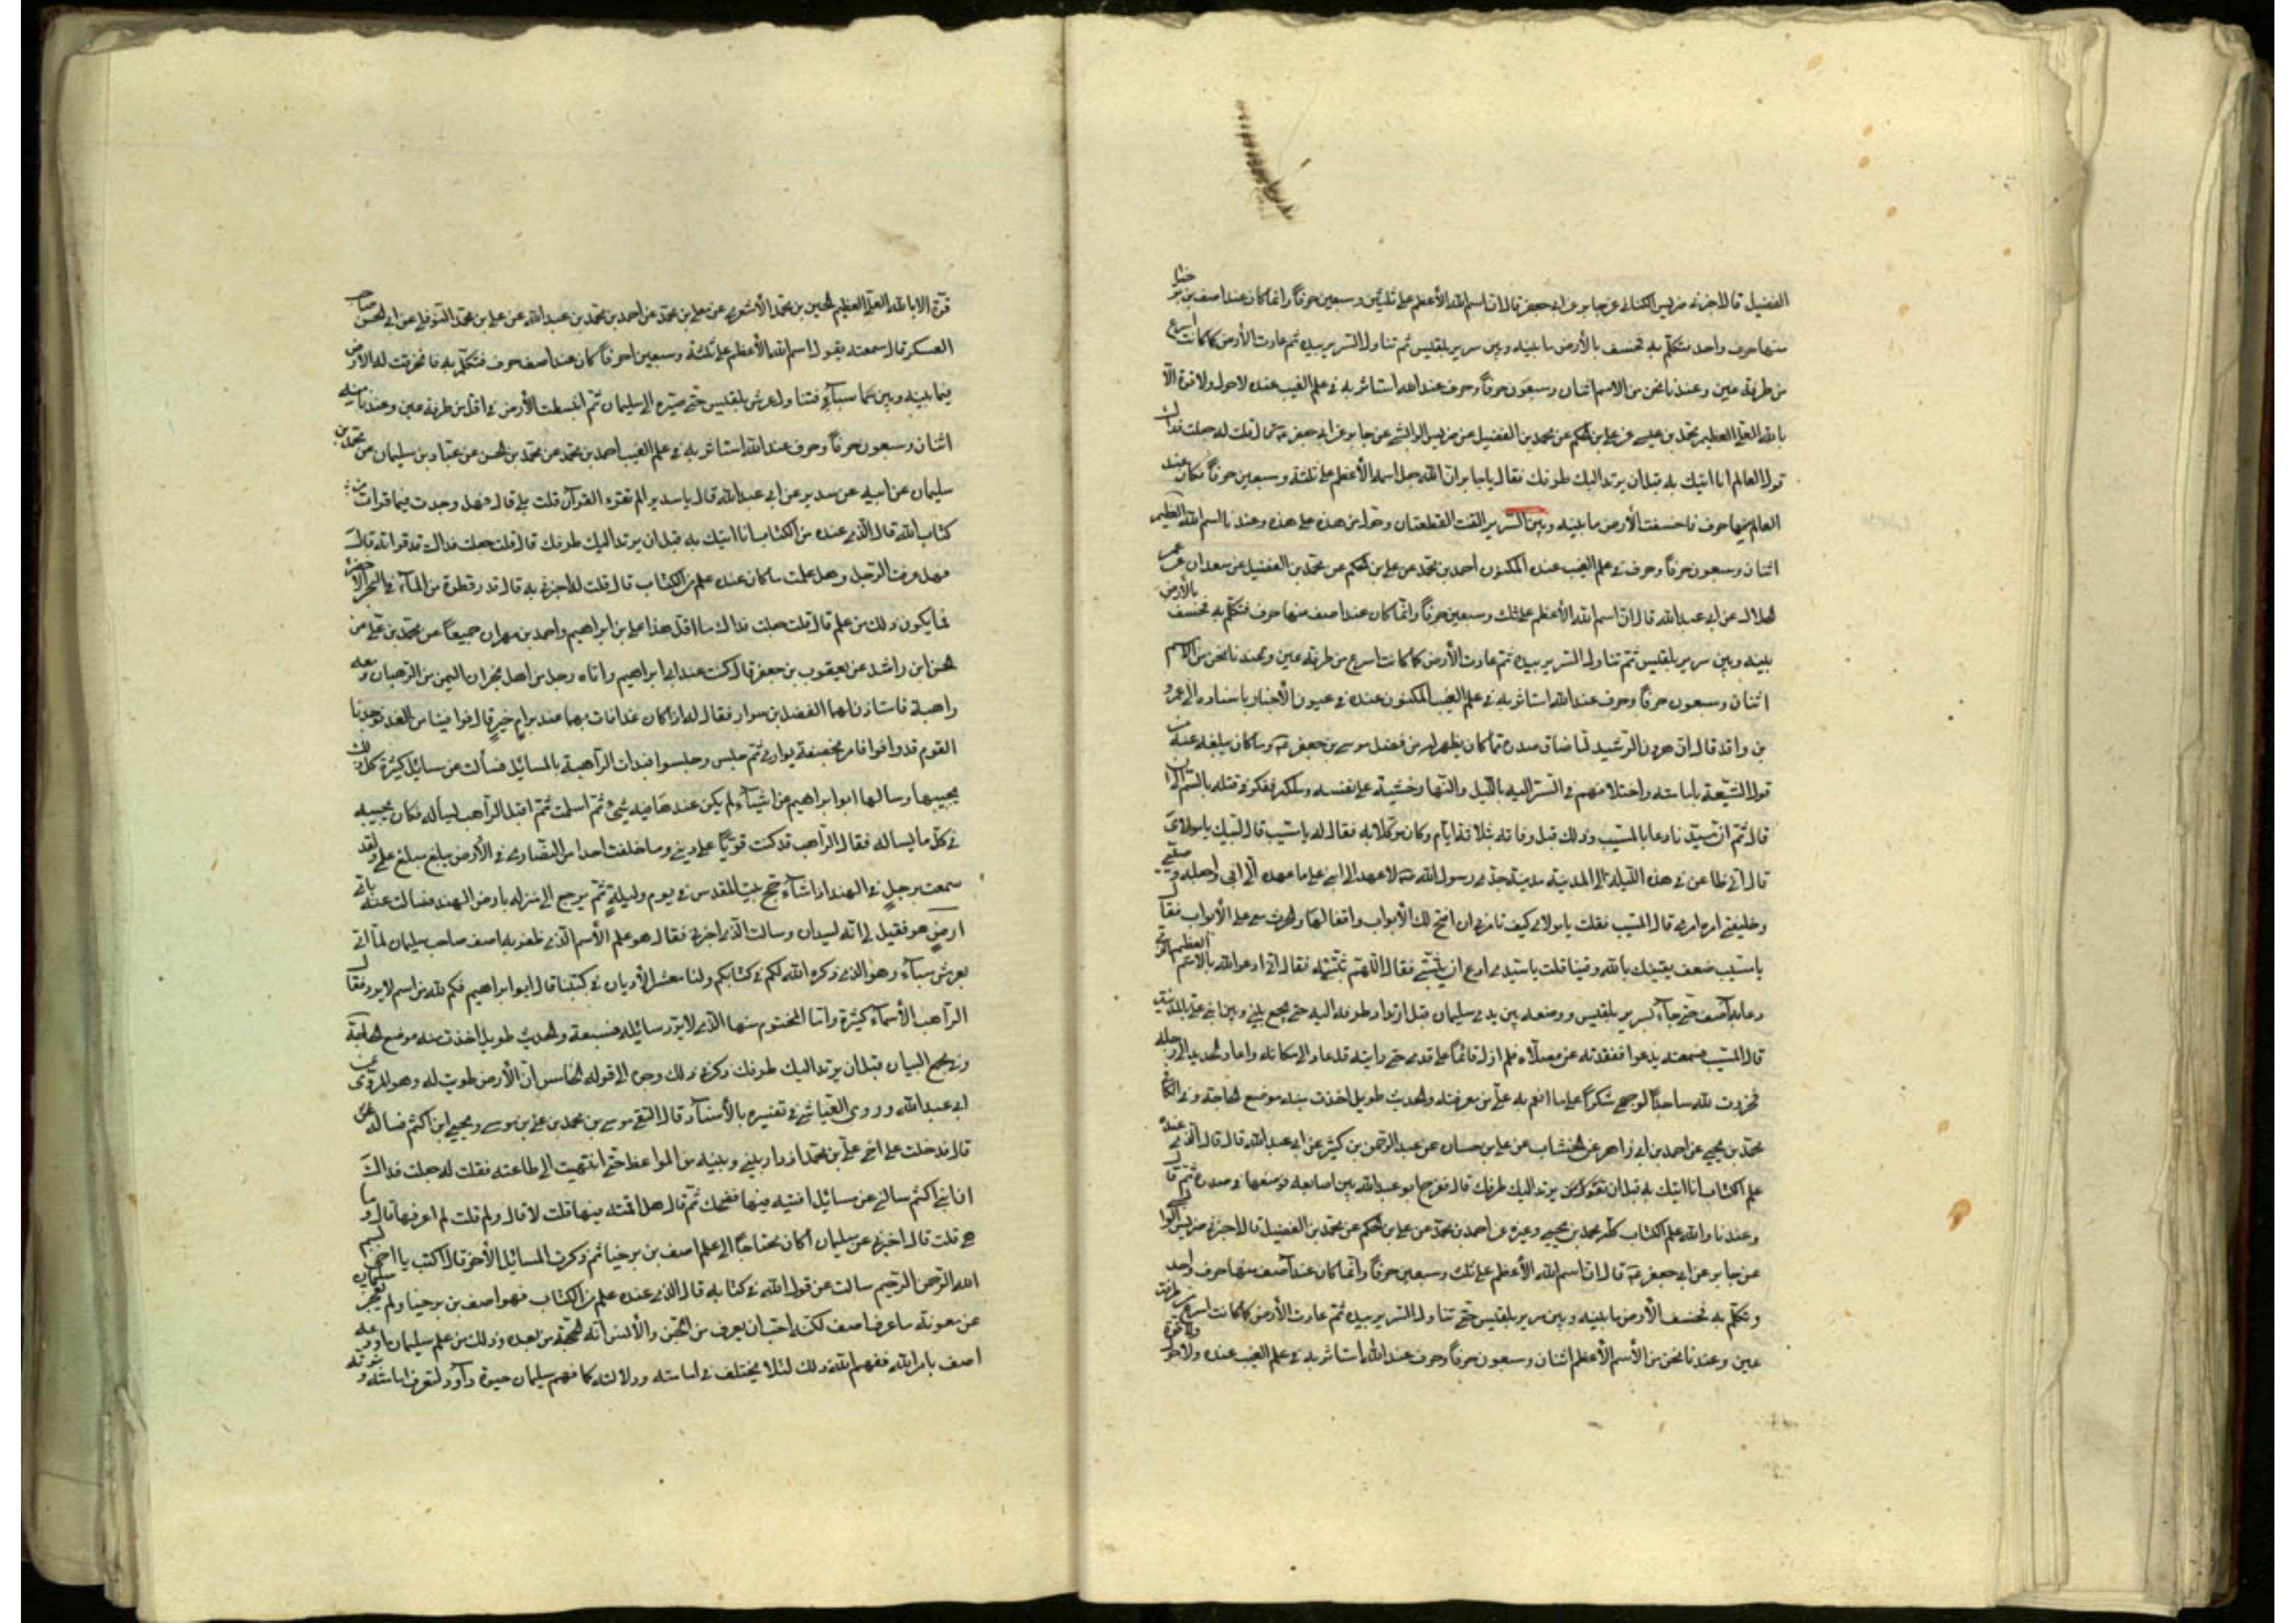 الفضيل قال اخبرني ضريس الكناسي عن جابر عن ابي جعفر قال ان اسم الله الأعظم على ثلثة وسبعين حرفاً وانما كان عند اصف بن برخيا
منها حرف واحد فتكلم به فخسف بالأرض ما بينه وبين سرير بلقيس ثم تناول السرير بيده ثم عادت الأرض كما كانت اسرع
من طرفة عين وعندنا نحن من الاسم اثنان وسبعون حرفاً وحرف عند الله استأثر به في علم الغيب عنده لا حول ولا قوة الا
بالله العلي العظيم محمد بن عن علي بن الحكم عن محمد بن الفضيل عن ضريس الوابشي عن جابر عن ابي جعفر قال قلت له جعلت فداك
قول العالم انا اتيك به قبل ان يرتد اليك طرفك فقال يا جابر ان الله جعل اسمه الأعظم على ثلثة وسبعين حرفاً فكان عند
العالم منها حرف فاخسفت الأرض ما بينه وبين السرير التقت القطعتان وحول من هذه على هذه وعندنا اسم الله العظيم
اثنان وسبعون حرفاً وحرف في علم الغيب عنده المكنون احمد بن محمد عن علي بن الحكم عن محمد بن الفضيل عن سعدان عن عمر
الحلال عن ابي عبد الله قال ان اسم الله الأعظم على ثلث وسبعين حرفاً وانما كان عند اصف منها حرف فتكلم به فخسف بالأرض
بينه وبين سرير بلقيس ثم تناول السرير بيده ثم عادت الأرض كما كانت اسرع من طرفة عين وعندنا نحن من الاسم
اثنان وسبعون حرفاً وحرف عند الله استأثر به في علم الغيب المكنون عنده في عيون الأخبار باسناده الى عمر
بن واقد قال ان هرون الرشيد لما ضاق صدره مما كان يظهر له من فضل موسى بن جعفر وما كان يبلغه عنه من
قول الشيعة بامامته واختلافهم في السر اليه بالليل والنهار وخشية على نفسه وملكه ففكر في قتله بالسم الى ان
قال ثم ان سيدنا دعا بالمسيب وذلك قبل وفاته بثلاثة ايام وكان موكلا به فقال له يا مسيب قال لبيك يا مولاي
قال اني ظاعن في هذه الليلة الى المدينة مدينة جدي رسول الله لاعهد الى ابني علي ما عهده الي ابي واجعله وصيي
وخليفتي امره امري قال المسيب فقلت يا مولاي كيف تأمرني ان افتح لك الأبواب واقفالها والحرس معي على الأبواب فقال
يا مسيب ضعف يقينك بالله وفينا قلت يا سيدي ادع ان يثبتني فقال اللهم ثبته فقال اني ادعو الله بالاسم العظيم الذي
دعا به آصف حتى جآء بسرير بلقيس ووضعه بين يدي سليمان قبل ارتداد طرفه اليه حتى يجمع بيني وبين ابني علي بالمدينة
قال المسيب فسمعته يدعوا ففقدته عن مصلاه فلم ازل قائماً على قدمي حتى رايته قد عاد الى مكانه واعاد الحديد الى رجله
فخررت لله ساجداً لوجهي شكراً على ما انعم به علي من معرفته والحديث طويل اخذت منه موضع الحاجة وفي الكافي
محمد بن يحيى عن احمد بن ابي زاهر عن الخشاب عن علي بن حسان عن عبد الرحمن بن كثير عن ابي عبد الله قال قال الذي عنده
علم الكتاب انا اتيك به قبل ان يرتد اليك طرفك قال ففرج ابو عبد الله بين اصابعه فوضعها في صدره ثم قال
وعندنا والله علم الكتاب كله محمد بن يحيى وغيره عن احمد بن محمد عن علي بن الحكم عن محمد بن الفضيل قال اخبرني ضريس الوابشي
عن جابر عن ابي جعفر قال ان اسم الله الأعظم على ثلث وسبعين حرفاً وانما كان عند آصف منها حرف واحد
وتكلم به فخسف الأرض ما بينه وبين سرير بلقيس حتى تناول السرير بيده ثم عادت الأرض كما كانت اسرع من طرفة
عين وعندنا نحن من الأسم الأعظم اثنان وسبعون حرفاً وحرف عند الله استأثر به في علم الغيب عنده ولا حول ولا قوة
قوة الا بالله العلي العظيم الحسين بن محمد الأشعري عن علي بن محمد عن احمد بن محمد بن عبد الله عن علي بن محمد النوفلي عن ابي الحسن صاحب
العسكر قال سمعته يقول اسم الله الأعظم على ثلثة وسبعين احرفاً كان عند اصف حرف فتكلم به فانخرقت له الأرض
فيما بينه وبين سبآء فتناول عرش بلقيس حتى صيره الى سليمان ثم انبسطت الأرض في اقل من طرفة عين وعندنا منه
اثنان وسبعون حرفاً وحرف عند الله استأثر به في علم الغيب احمد بن محمد عن محمد بن الحسن عن عباد بن سليمان عن محمد بن
سليمان عن ابيه عن سدير عن ابي عبد الله قال يا سدير الم تقرء القرآن قلت بلى قال فهل وجدت فيما قرات من
كتاب الله قال الذي عنده من الكتاب انا اتيك به قبل ان يرتد اليك طرفك قال قلت جعلت فداك قد قراته قال
فهل عرفت الرجل وهل علمت ما كان عنده علم من الكتاب قال قلت اخبرني به قال قدر قطرة من المآء في البحر الأخضر
فما يكون ذلك من علم قال قلت جعلت فداك ما اقل هذا علي بن ابراهيم واحمد بن مهران جميعاً عن محمد بن علي عن
الحسن ابن راشد عن يعقوب بن جعفر قال كنت عند ابي ابراهيم واتاه رجل من اهل نجران اليمن من الرهبان ومعه
راهبة فاستاذن لهما الفضل بن سوار فقال له اذا كان غدا فات بهما عند بئر ام خير قال فوافينا من الغد فوجدنا
القوم قد وافوا فامر بخصفة بواري ثم جلس وجلسوا فبدات الراهبة بالمسائل فسألت عن مسائل كثيرة كل ذلك
يجيبها وسالها ابو ابراهيم عن اشيآء لم يكن عندها فيه شئ ثم اسلمت ثم اقبل الراهب يسأله فكان يجيبه
في كل ما يساله فقال الراهب قد كنت قوياً على ديني وما خلفت احدا من النصارى في الأرض يبلغ مبلغي علي ولقد
سمعت برجل في الهند اذا شآء حج بيت المقدس في يوم وليلة ثم يرجع الى منزله بارض الهند فسالت عنه باي
ارض هو فقيل لي انه بسبذان وسالت الذي اخبرني فقال هو علم الأسم الذي ظفر به اصف صاحب سليمان لما اتى
بعرش سبآء وهو الذي ذكره الله لكم في كتابكم ولنا معشر الأديان في كتبنا قال ابو ابراهيم فكم لله من اسم لا يرد فقال
الراهب الأسمآء كثيرة واما المحتوم منها الذي لا يرد سائله فسبعة والحديث طويل اخذت منه موضع الحاجة
وفي مجمع البيان قبل ان يرتد اليك طرفك وذكر في ذلك وجوه الى قوله الخامس ان الأرض طويت له وهو المروي عن
ابي عبد الله وروى العياشي في تفسيره بالأسناد قال التقى موسى بن محمد بن علي بن موسى ويحيى ابن اكثم فساله عن
قال فدخلت على اخي علي بن محمد اذ دار بيني وبينه من المواعظ حتى انتهيت الى طاعته فقلت له جعلت فداك
ان ابن اكثم سالني عن مسائل افتيه فيها فضحك ثم قال هل افتيته فيها قلت لا قال ولم قلت لم اعرفها قال وما
هي قلت قال اخبرني عن سليمان أكان محتاجاً الى علم اصف بن برخيا ثم ذكرت المسائل الأخر قال اكتب يا اخي بسم
الله الرحمن الرحيم سالت عن قول الله في كتابه قال الذي عنده علم من الكتاب فهو اصف بن برخيا ولم يعجز سليمان
عن معرفة ما عرف اصف لكنه احب ان يعرف من الجن والأنس انه الحجة من بعده وذلك من علم سليمان اودعه
اصف بامر الله ففهمه الله ذلك لئلا يختلف في امامته ودلالته كما فهم سليمان في حيوة داود لتعرف امامته و